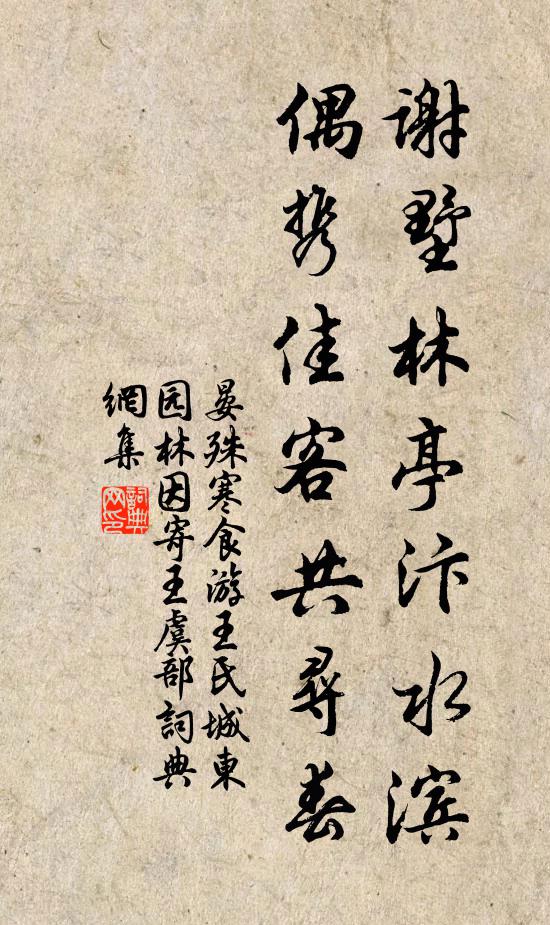 谢墅林亭汴水滨
偶携佳客共寻春
晏殊寒食游王氏城東
园林因寄王虞部詞典
網集
詞典网印